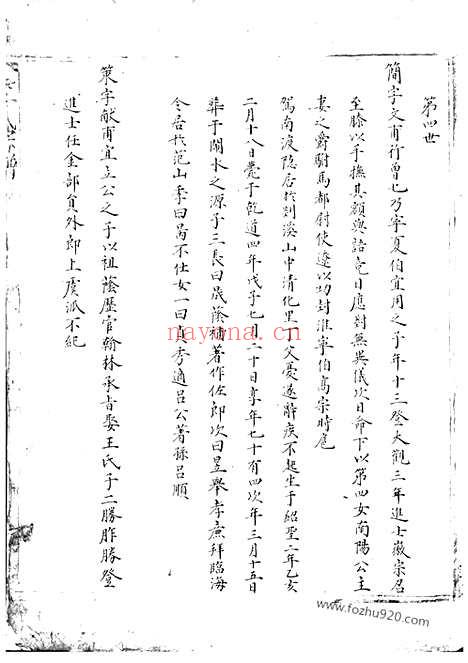 第四世
簡字文甫行曾七乃寧夏伯宜用之子年十三登大觀三年進士徽宗召
至膝以手撫其額與語竟日應對無異儀次日命下以第四女南陽公主
妻之爵駙馬都尉使遼以功封淮寧伯高宗時扈
駕南渡隐居於剡溪山中清化里父憂遂辭疾不起生于紹聖二年乙亥
二月十八日薨于乾道四年戊子七月二十日享年七十有四次年三月十五日
葬于閣水之源子三長曰晟蔭補著作佐郎次曰昱舉孝亷拜臨海
令居於范山季曰昺不仕女一曰貞秀適吕公著孫吕順
策字献甫宜立公之子以祖蔭歷官翰林承旨娶王氏子二勝胙勝登
進士任金部員外郎上虞派不紀
nayona.cn
www.fozhu920.com